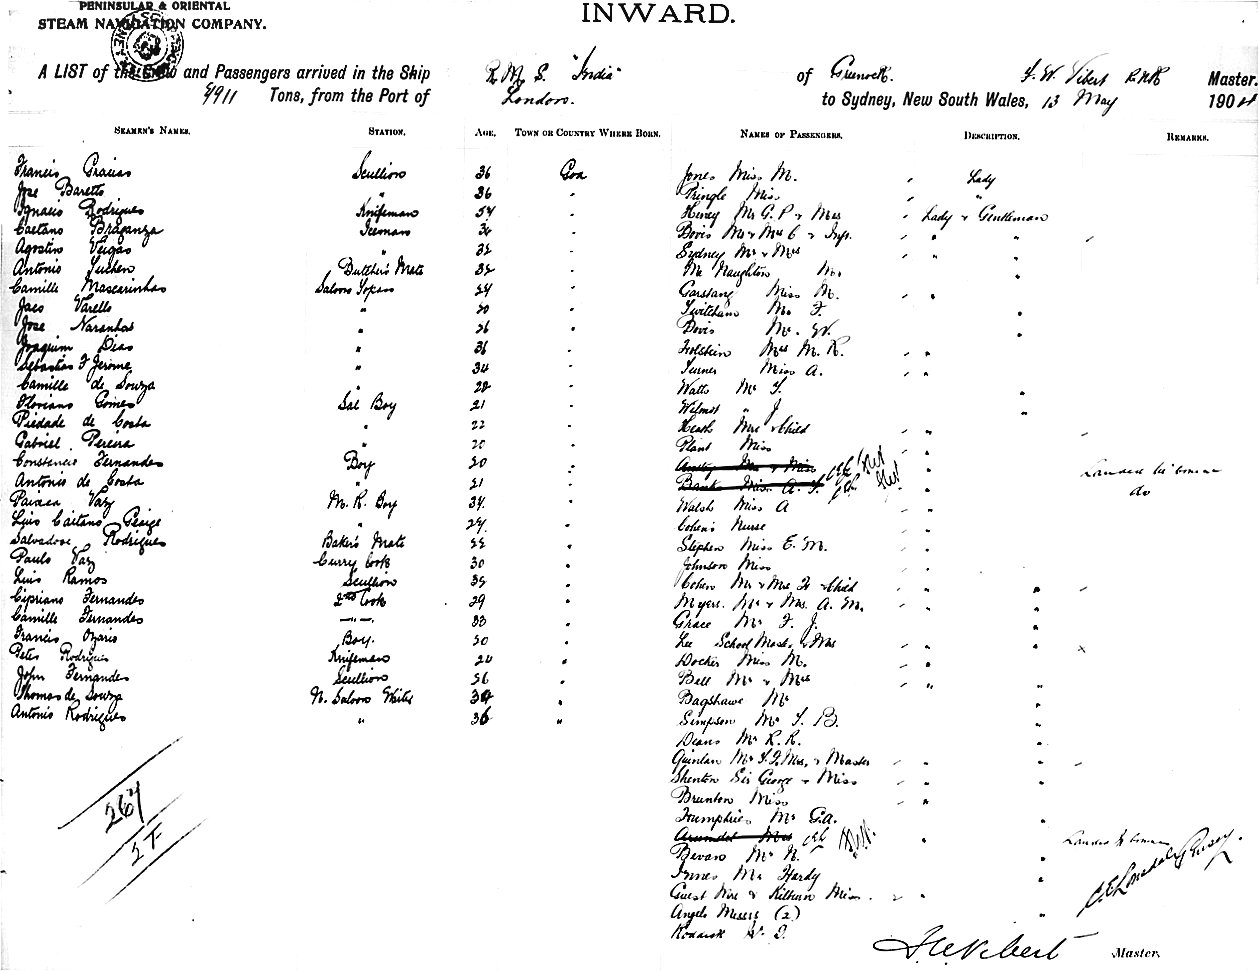 PENINSULAR & ORIENTAL
STEAM NAVIGATION COMPANY.
INWARD.
A LIST of the Crew and Passengers arrived in the Ship R.M.S. "India" of Greenock. Vibert R.N.R. Master.
4911 Tons, from the Port of London. to Sydney, New South Wales, 13 May 190
SEAMEN'S NAMES. STATION. AGE. TOWN OR COUNTRY WHERE BORN.
Francis Gracias Scullion 36 Goa
Jose Baretto " 36 "
Ignacio Rodrigues Knifeman 54 "
Caetano Braganza Iceman "
Agostino Veigas " "
Antonio Butcher's Mate "
Camille Mascarinhas Saloon Topass 24 "
Varella " "
Jose Naranhas " "
Joaquim Dias " 36 "
Sebastiao F Jerome " 34 "
Camille de Souza " "
Floriano Gomes Sal Boy 21 "
Piedade de Costa " 22 "
Gabriel Pereira " 20 "
Constencio Fernandes Boy 20 "
Antonio de Costa " 21 "
Vaz M. R. Boy 34 "
Luis Caetano " 24 "
Salvadore Rodrigues Baker's Mate "
Paulo Vaz Curry Cook 30 "
Luis Ramos Scullion "
Cipriano Fernandes 2nd Cook 29 "
Camille Fernandes — " — 33 "
Francis Ozario Boy. "
Peter Rodrigues Knifeman "
John Fernandes Scullion "
Thomas de Souza "
Antonio Rodrigues " 36 "
267
27
NAMES OF PASSENGERS. DESCRIPTION. REMARKS.
Jones Miss M. Lady
Pringle Miss "
Mr G. P & Mrs Lady & Gentleman
Mr & Mrs C & Inft.
Sydney Mr & Mrs
Mc Naughton Mr
Garstang Miss M.
Twitcham Mr F.
Mr. W.
Holstein Mrs M. R.
Miss A.
Watts Mr
Wilmot " J.
Heath Mrs & Child
Plant Miss
Mr & Miss Landed
Banks Miss A. do
Walsh Miss A
Cohen's Nurse
Stephen Miss E. M.
Johnson Miss
Cohen Mr & Mrs & Child
Myers. Mr & Mrs. A. M.
Grace Mr F. J.
Lee School Mast. & Mrs
Docker Miss M.
Bell Mr & Mrs
Bagshawe Mr
Simpson Mr B.
Deans Mr R. R.
Quinlan Mr Mrs, & Master
Shenton Sir George & Miss
Brunton Miss
Humphries Mr G.A.
Arundel Mrs Landed
Bevan Mr N.
Innes Mr Hardy
Guest Mrs & Kilburn Miss.
Angelo Messrs (2)
Vibert Master.